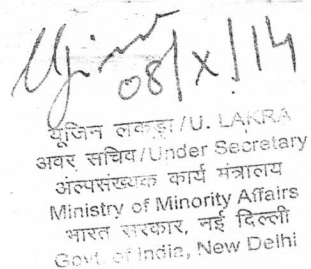 08/X/14
यूजिन लकड़ा/U. LAKRA
अवर सचिव/Under Secretary
अल्पसंख्यक कार्य मंत्रालय
Ministry of Minority Affairs
भारत सरकार, नई दिल्ली
Govt. of India, New Delhi